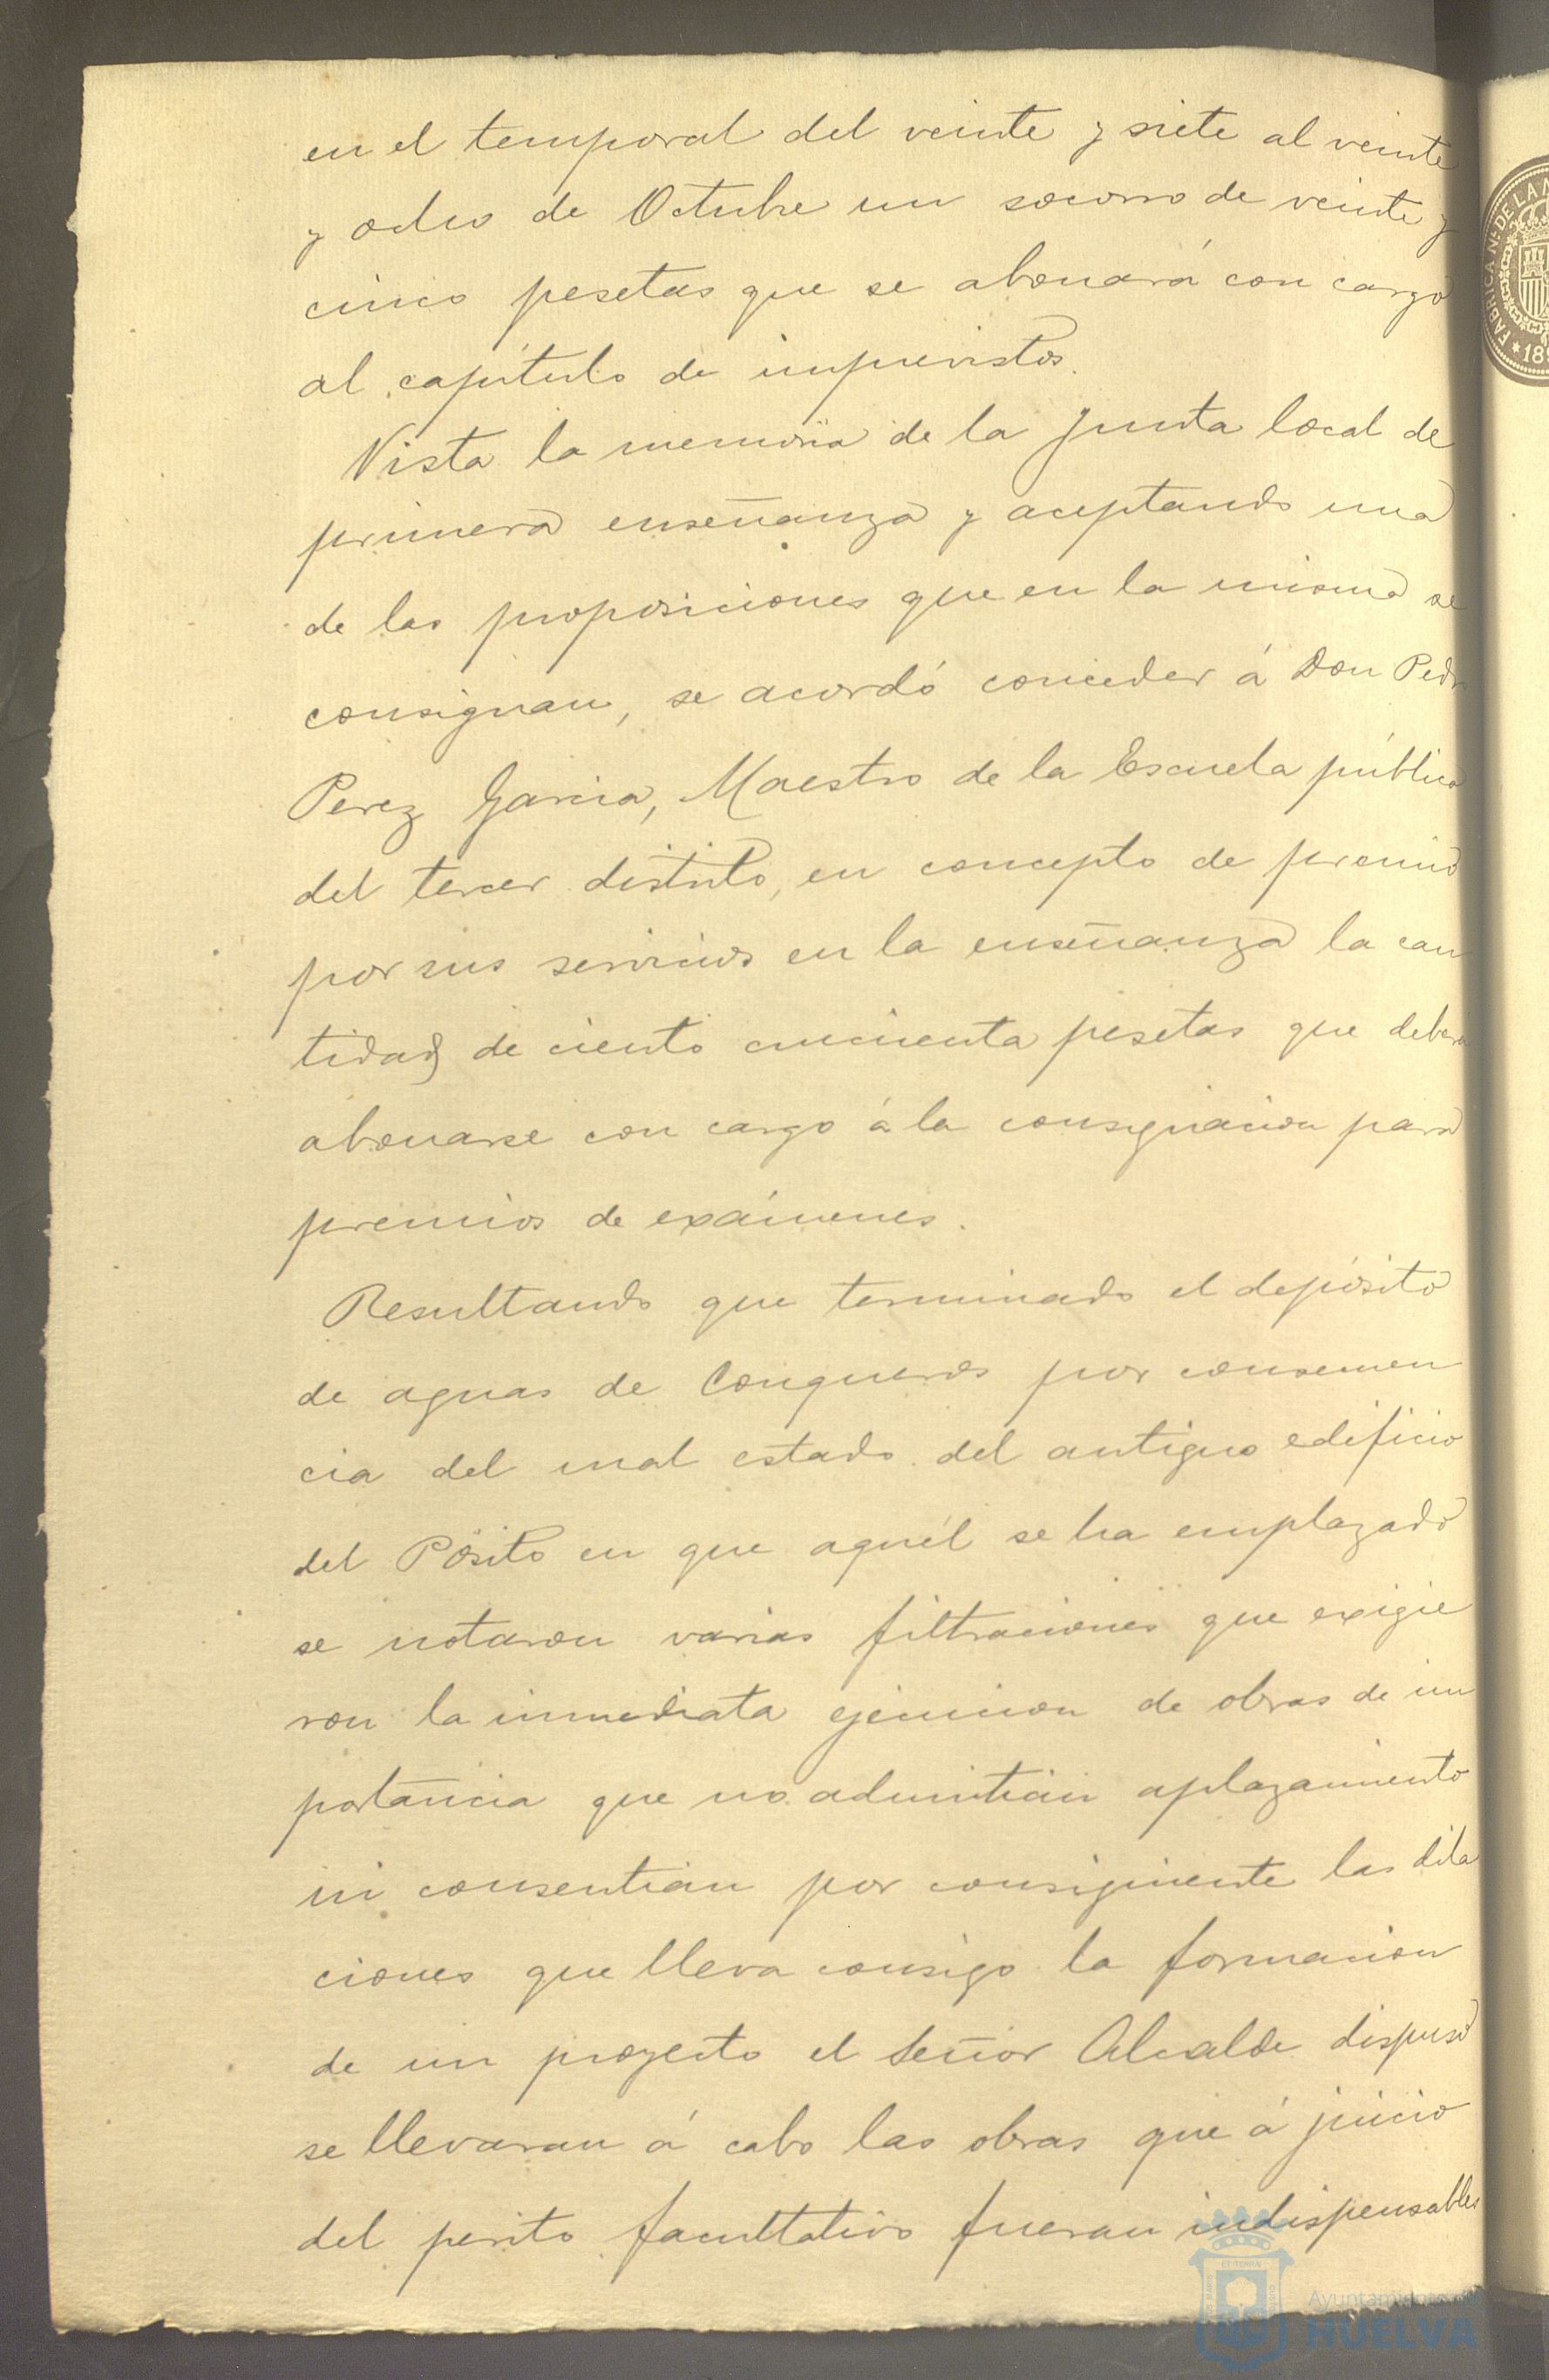 en el temporal del veinte y siete al veinte
y ocho de Octubre un socorro de veinte y
cinco pesetas que se abonará con cargo
al capítulo de imprevistos.
Vista la memoria de la Junta local de
primera enseñanza y aceptando una
de las proposiciones que en la misma se
consignan, se acordó conceder á Don Pedro
Perez Garcia, Maestro de la Escuela pública
del tercer distrito, en concepto de premio
por sus servicios en la enseñanza la can
tidad de ciento cincuenta pesetas que deberá
abonarse con cargo á la consignacion para
premios de exámenes.
Resultando que terminado el depósito
de aguas de Conqueros por consecuen
cia del mal estado del antiguo edificio
del Pósito en que aquél se ha emplazado
se notaron varias filtraciones que exigie
ron la inmediata ejecucion de obras de im
portancia que no admitian aplazamiento
ni consentian por consiguiente las dila
ciones que lleva consigo la formacion
de un proyecto el Señor Alcalde dispuso
se llevaran á cabo las obras que á juicio
del perito facultativo fueran indispensables
FABRICA N. DE LA
Ayuntamiento de
HUELVA